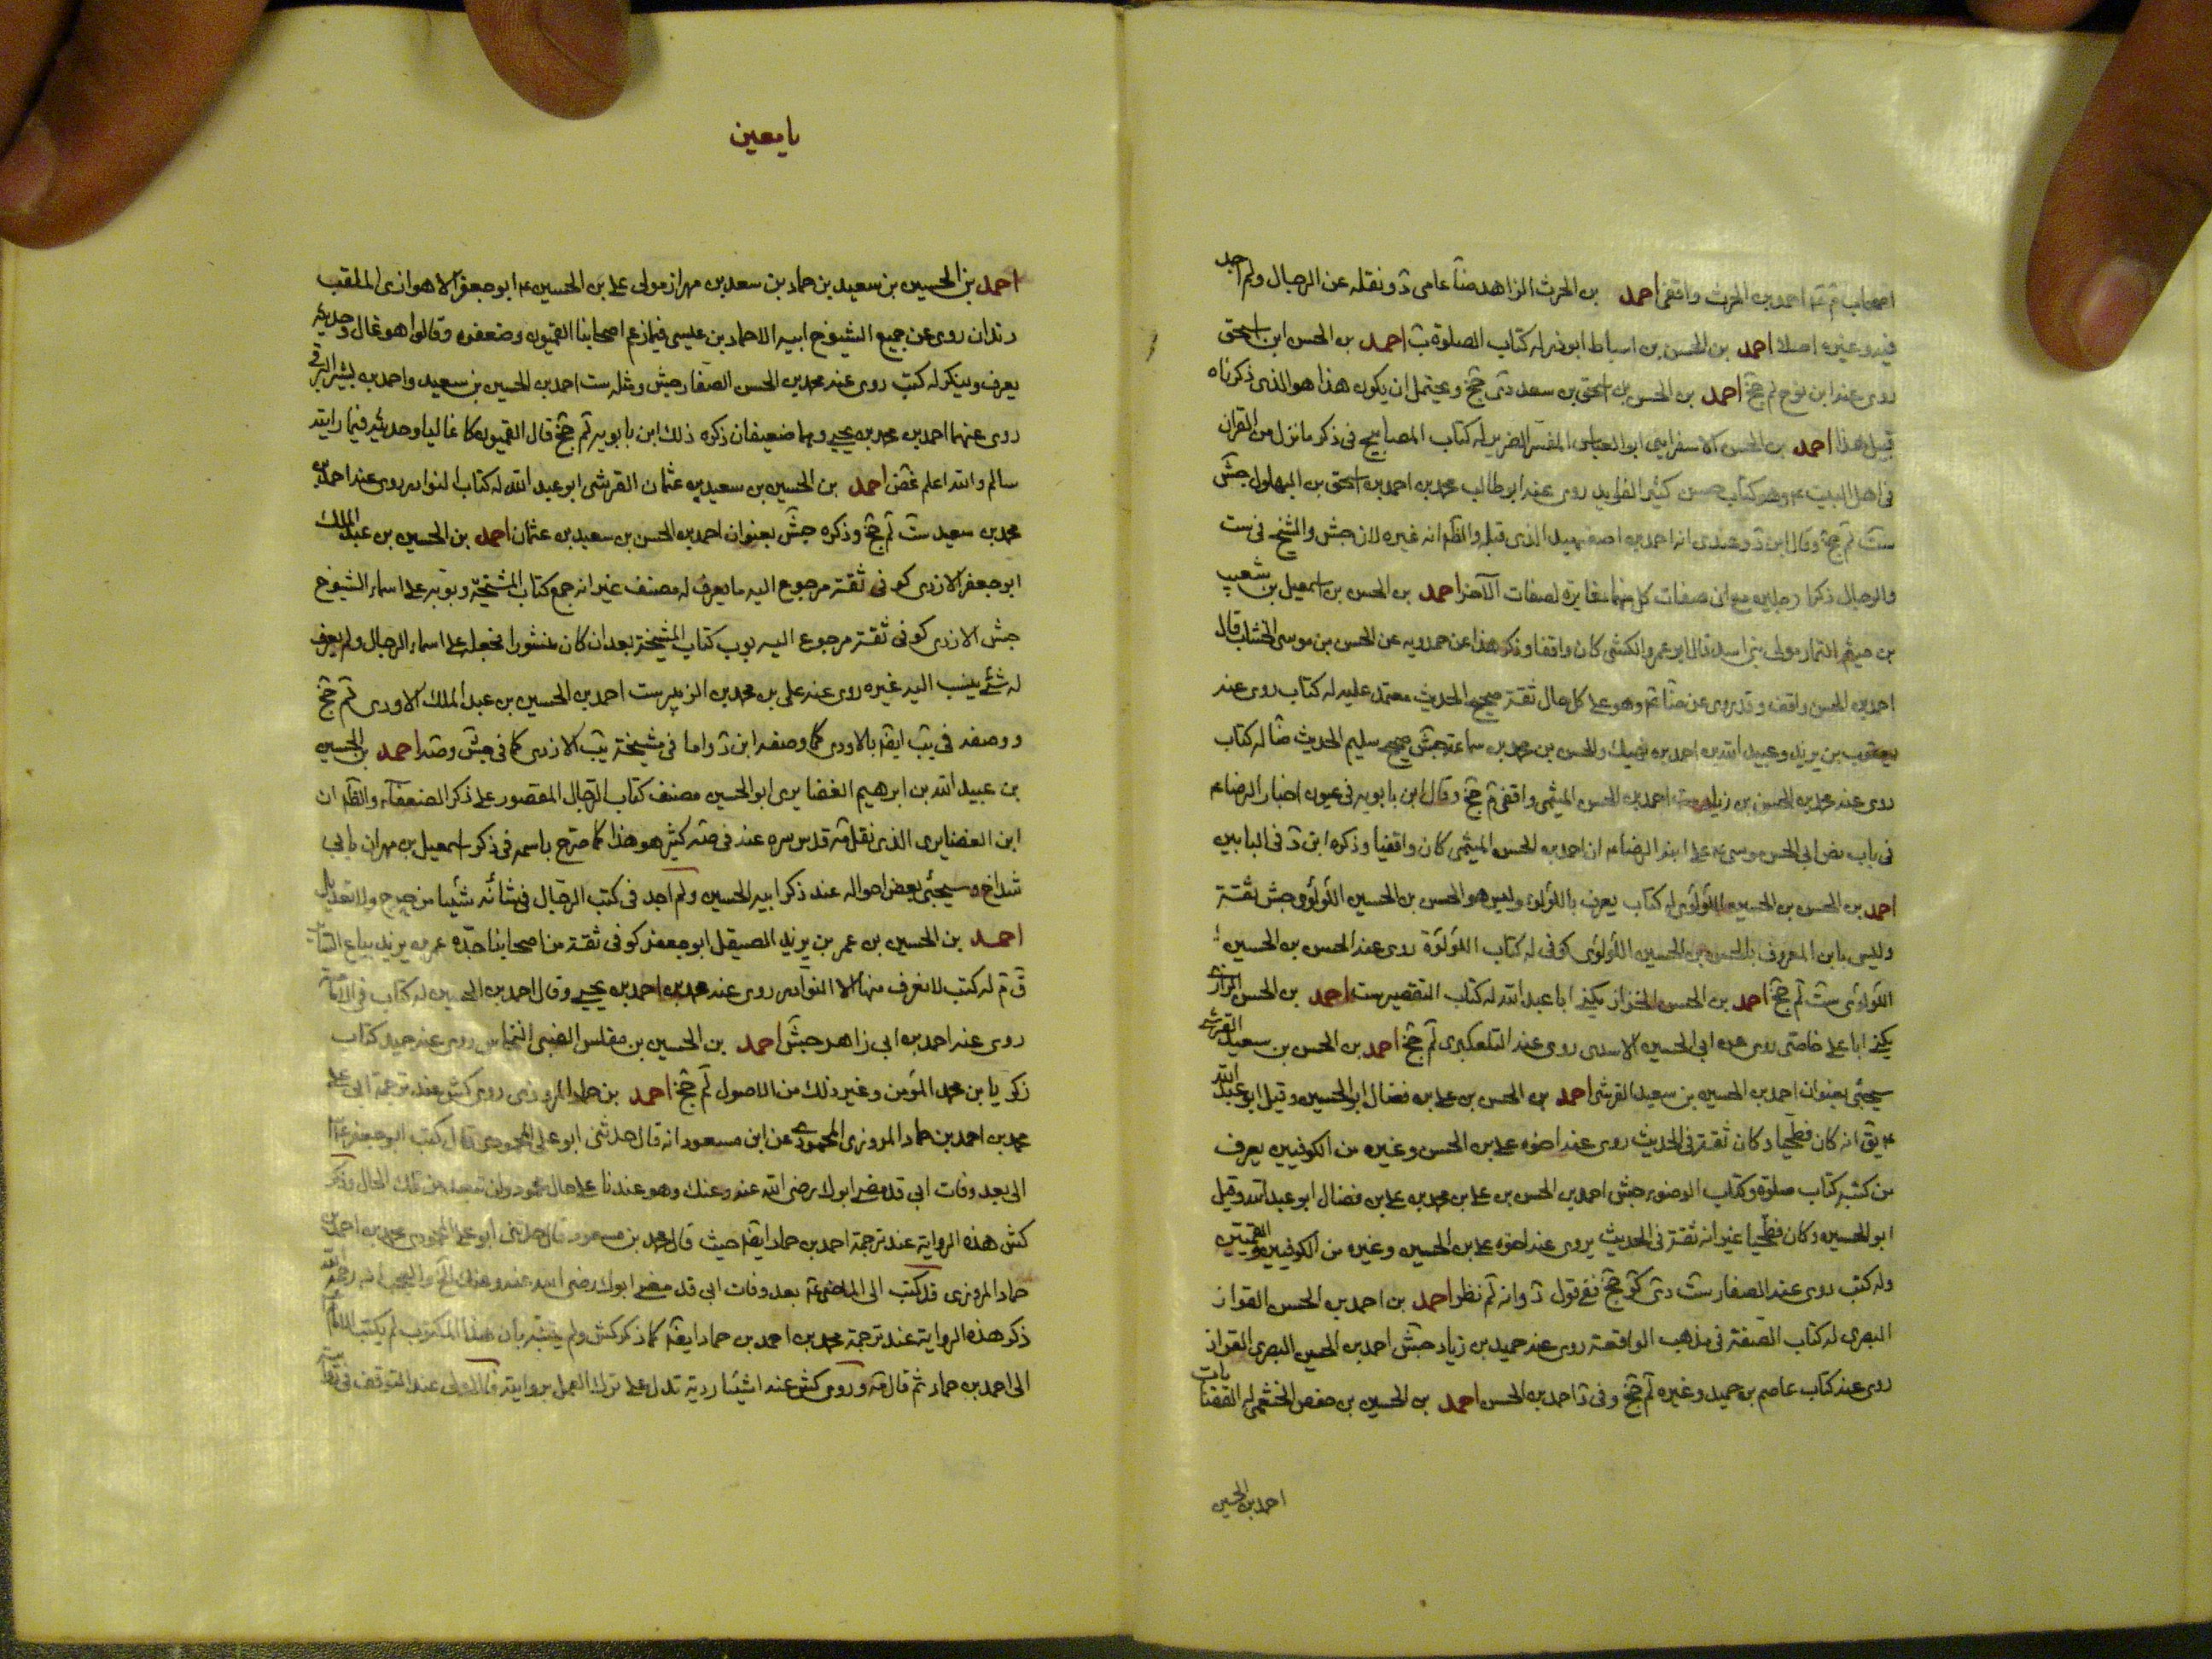 اصحاب احمد بن الحرث واقفى احمد بن الحرث الزاهد عامى د ونقله عن الرجال ولم اجد
فيه وغيره اصلا احمد بن الحسن بن اسباط ابوذر له كتاب الصلوة ب احمد بن الحسن ابن اسحق
روى عنه ابن نوح لم جخ احمد بن الحسن بن اسحق بن سعد دى جخ ويحتمل ان يكون هذا هو الذى ذكرناه
قبيل هذا احمد بن الحسن الاسفراينى ابو العباس المفسر الضرير له كتاب المصابيح فى ذكر ما نزل من القران
فى اهل البيت ع وهو كتاب حسن كثير الفوايد روى عنه ابو طالب محمد بن احمد بن اسحق بن البهلول جش
ست لم جخ وقال ابن د وعندى انه احمد بن اصفهبد الذى قبله والظ انه غيره لان جش والشيخ فى ست
والرجال ذكرا رجلين مع ان صفات كل منهما مغايرة لصفات الآخر احمد بن الحسن بن اسمعيل بن شعيب
بن ميثم التمار مولى بنى اسد قال ابو عمرو الكشى كان واقفا وذكر هذا عن حمدويه عن الحسن بن موسى الخشاب قال
احمد بن الحسن واقف وقد روى عن ضا ع وهو على كل حال ثقة صحيح الحديث معتمد عليه له كتاب روى عنه
يعقوب بن يزيد وعبيد الله بن احمد بن نهيك والحسن بن محمد بن سماعة جش صحيح سليم الحديث ضا له كتاب
روى عنه محمد بن الحسن بن زياد ست احمد بن الحسن الميثمى واقفى م جخ وقال ابن بابويه فى عيون اخبار الرضا ع
فى باب نص ابى الحسن موسى ع على ابنه الرضا ع ان احمد بن الحسن الميثمى كان واقفيا وذكره ابن د فى البابين
احمد بن الحسن بن الحسين اللؤلؤى له كتاب يعرف باللؤلؤة وليس هو الحسن بن الحسين اللؤلؤى جش ثقة
وليس بابن المعروف بالحسن بن الحسين اللؤلؤى كوفى له كتاب اللؤلؤة روى عنه الحسن بن الحسين
اللؤلؤى ست لم جخ احمد بن الحسن الخزاز يكنى ابا عبد الله له كتاب التفسير ست احمد بن الحسن الرازى
يكنى ابا على خاصى روى عن ابى الحسين الاسدى روى عنه التلعكبرى لم جخ احمد بن الحسن بن سعيد القرشى
سيجئ بعنوان احمد بن الحسين بن سعيد القرشى احمد بن الحسن بن على بن فضال ابو الحسين وقيل ابو عبد الله
يق انه كان فطحيا وكان ثقة فى الحديث روى عنه اخوه على بن الحسن وغيره من الكوفيين يعرف
من كتبه كتاب صلوة وكتاب الوضوء جش احمد بن الحسن بن على بن محمد بن على بن فضال ابو عبد الله وقيل
ابو الحسين وكان فطحيا غير انه ثقة فى الحديث يروى عنه اخوه على بن الحسين وغيره من الكوفيين والقميين
وله كتب روى عنه الصفار ست دى كر جخ ففى قول د وانه لم نظر احمد بن احمد بن الحسن القزاز
البصرى له كتاب الصفة فى مذهب الواقفة روى عنه حميد بن زياد جش احمد بن الحسين البصرى القزاز
روى عنه كتاب عاصم بن حميد وغيره لم جخ وفى د احمد بن الحسن احمد بن الحسين بن حفص الخثعمى له
احمد بن الحسين
يا معين
احمد بن الحسين بن سعيد بن حماد بن سعد بن مهران مولى على بن الحسين ع ابو جعفر الاهوازى الملقب
دندان روى عن جميع الشيوخ ابيه الا حماد بن عيسى فيما زعم اصحابنا القميون وضعفوه وقالوا هو غال وحديثه
يعرف وينكر له كتب روى عنه محمد بن الحسن الصفار جش ومثله ست احمد بن الحسين بن سعيد واحمد بن بشير البرقى
روى عنهما احمد بن محمد بن يحيى وهما ضعيفان ذكره ذلك ابن بابويه لم جخ قال القميون كا غاليا وحديثه فيما رايته
سالم والله اعلم غض احمد بن الحسين بن سعيد بن عثمان القرشى ابو عبد الله له كتاب النوادر روى عنه احمد بن
محمد بن سعيد ست لم جخ وذكره جش بعنوان احمد بن الحسن بن سعيد بن عثمان احمد بن الحسين بن عبد الملك
ابو جعفر الازدى كوفى ثقة مرجوع اليه ما يعرف له مصنف غير انه جمع كتاب المشيخة وبوبه على اسماء الشيوخ
جش الازدى كوفى ثقة مرجوع اليه بوب كتاب المشيخة بعد ان كان منثورا فجعله على اسماء الرجال ولم يعرف
له شئ ينسب اليه غيره روى عنه على بن محمد بن الزبير ست احمد بن الحسين بن عبد الملك الاودى لم جخ
ووصفه فى يب ايضا بالاودى كما وصفه ابن د واما فى مشيخة يب الازدى كما فى جش وصه احمد بن الحسين
بن عبيد الله بن ابرهيم الغضايرى ابو الحسين مصنف كتاب الرجال المقصور على ذكر الضعفاء والظ ان
ابن الغضايرى الذى نقل مه قدس سره عنه فى صه كثيرا هو هذا كما صرح باسمه فى ذكر اسمعيل بن مهران يا بى
شداخ وسيجئ بعض احواله عند ذكر ابيه الحسين ولم اجد فى كتب الرجال فى شأنه شيئا من جرح ولا تعديل
احمد بن الحسين بن عمر بن يزيد الصيقل ابو جعفر كوفى ثقة من اصحابنا جده عمر بن يزيد بياع السابرى
ق م له كتب لا نعرف منها الا النوادر روى عنه محمد بن احمد بن يحيى وقال احمد بن الحسين له كتاب فى الامامة
روى عنه احمد بن ابى زاهد جش احمد بن الحسين بن مفلس الضبى النخاس روى عنه حميد كتاب
زكريا بن محمد المؤمن وغير ذلك من الاصول لم جخ احمد بن حماد المروزى روى كش عند ترجمة ابى على
محمد بن احمد بن حماد المروزى المحمودى عن ابن مسعود انه قال حدثنى ابو على المحمودى قال كتب ابو جعفر ع
الى بعد وفات ابى قد مضى ابوك رضى الله عنه وعنك وهو عندنا على حال محمودة ولن تبعد من تلك الحال وذكر
كش هذه الرواية عند ترجمة احمد بن حماد ايضا حيث قال محمد بن مسعود قال حدثنى ابو على المحمودى محمد بن احمد بن
حماد المروزى قد كتب الى الماضى ع بعد وفات ابى قد مضى ابوك رضى الله عنه وعنك الخ والعجب انه رحمه الله
ذكر هذه الرواية عند ترجمة محمد بن احمد بن حماد ايضا كما ذكر كش ولم يتنبه بان هذا المكتوب لم يكتب الامام
الى احمد بن حماد ثم قال مه وروى كش عنه اشياء ردية تدل على ترك العمل بروايته فالاولى عندى التوقف فى